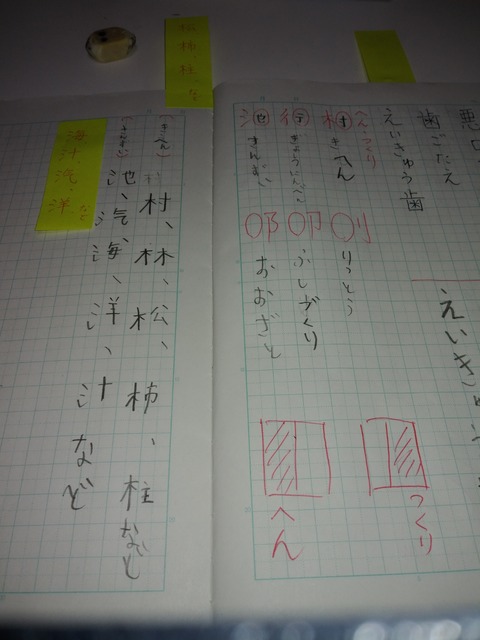 悪口
歯ごたえ
えいきゅう歯
えいきゅう
へん・つくり
木 きへん
行 ぎょうにんべん
池 さんずい
刂 りっとう
卩 ふしづくり
阝 おおざと
つくり
へん
(きへん)
村、林、松、柿、柱など
(さんずい)
池、汽、海、洋、汁など
松、柿、柱、な
海、汁、汽、洋、など